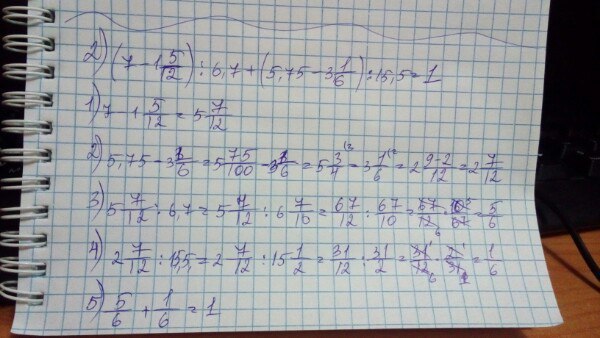 2) (7 - 1 5/12) : 6,7 + (5,75 - 3 1/6) : 15,5 = 1
1) 7 - 1 5/12 = 5 7/12
2) 5,75 - 3 1/6 = 5 75/100 - 3 1/6 = 5 3/4 - 3 1/6 = 2 9-2/12 = 2 7/12
3) 5 7/12 : 6,7 = 5 7/12 : 6 7/10 = 67/12 : 67/10 = 67/12 · 10/67 = 5/6
4) 2 7/12 : 15,5 = 2 7/12 : 15 1/2 = 31/12 : 31/2 = 31/12 · 2/31 = 1/6
5) 5/6 + 1/6 = 1